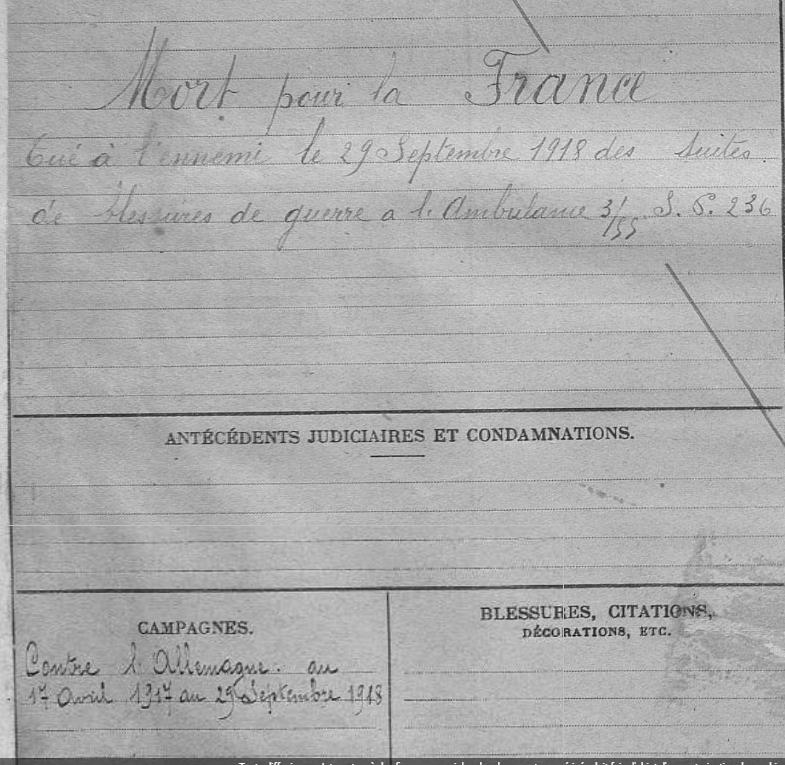 Mort pour la France
Tué à l'ennemi le 29 Septembre 1918 des suites
de blessures de guerre a l'Ambulance 3/55 S. P. 236
ANTÉCÉDENTS JUDICIAIRES ET CONDAMNATIONS.
CAMPAGNES.
Contre l'Allemagne. au
17 Avril 1917 au 29 Septembre 1918
BLESSURES, CITATIONS,
DÉCORATIONS, ETC.